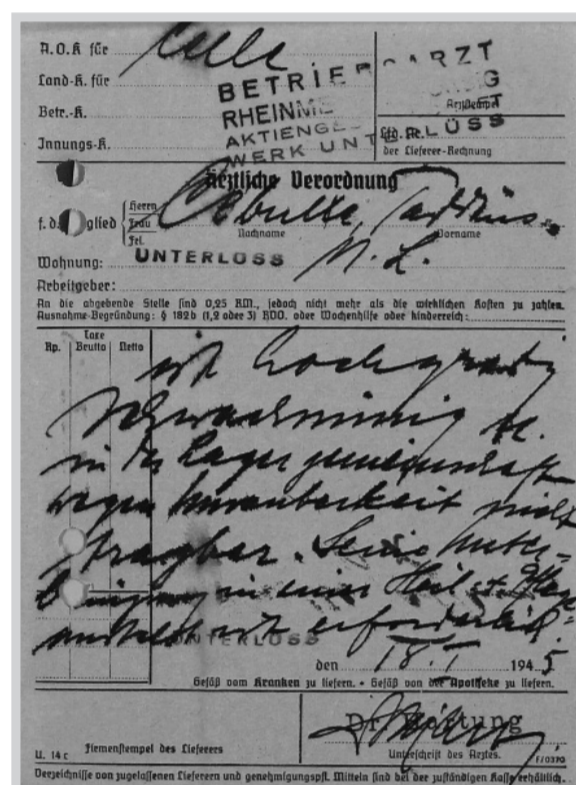 A.O.K für Celle
Land-K. für
Betr.-K.
Innungs-K.
BETRIEBSARZT
RHEINME
AKTIENGE
WERK UNTERLÜSS
Arztstempel
Lfd. Nr.
der Lieferer-Rechnung
Ärztliche Verordnung
f. d. Mitglied
Herrn
Frau
Frl.
Cebulla, Taddäus.
Nachname Vorname
Wohnung: UNTERLÜSS
Arbeitgeber:
An die abgebende Stelle sind 0,25 RM., jedoch nicht mehr als die wirklichen Kosten zu zahlen.
Ausnahme-Begründung: § 182 b (1,2 oder 3) RVO. oder Wochenhilfe oder kinderreich:
Rp. Taxe
Brutto Netto
ist hochgradig
schwachsinnig u.
in der Lagergemeinschaft
wegen Unsauberkeit nicht
tragbar. Seine Unter-
bringung in einer Heil- u. Pflege-
anstalt ist erforderlich.
UNTERLÜSS
den 18. I 1945
Gefäß vom Kranken zu liefern. • Gefäß von der Apotheke zu liefern.
U. 14 c Firmenstempel des Lieferers
Unterschrift des Arztes.
F/0370
Verzeichnisse von zugelassenen Lieferern und genehmigungspfl. Mitteln sind bei der zuständigen Kasse erhältlich.